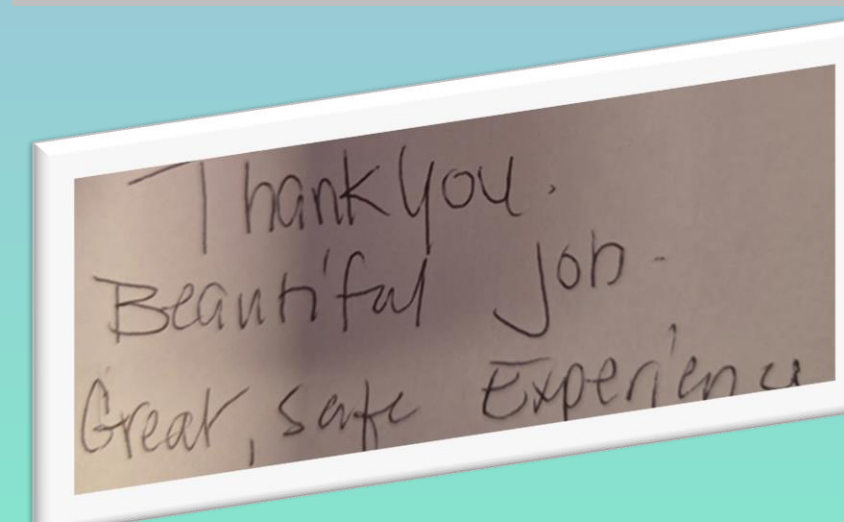 Thank you.
Beautiful Job-
Great, safe Experience